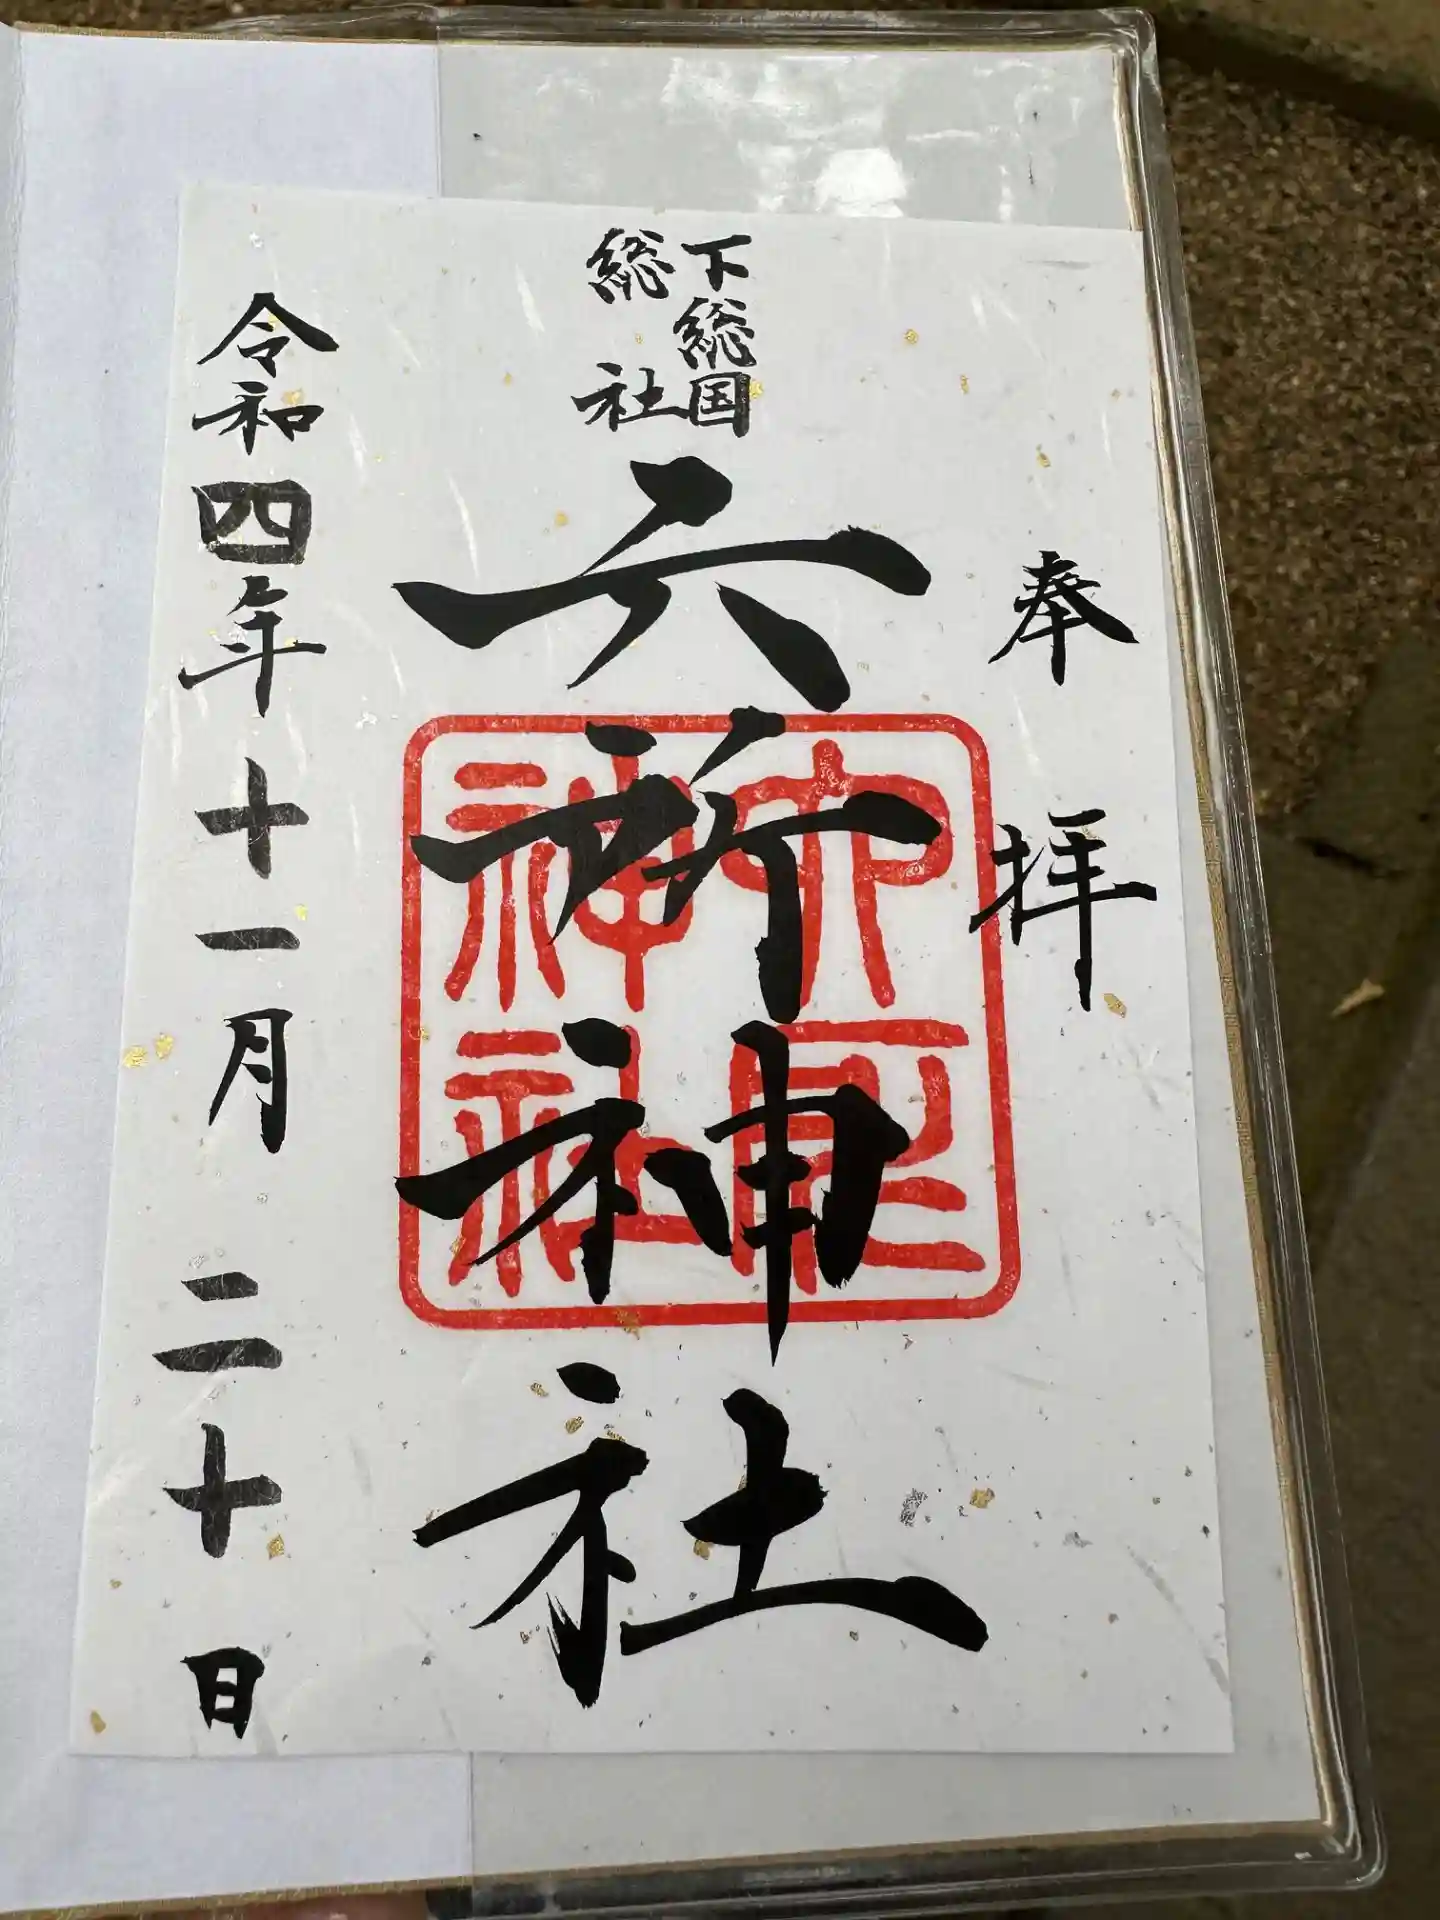 奉拝
下総国
総社
六所神社
六所
神社
令和四年十一月二十日